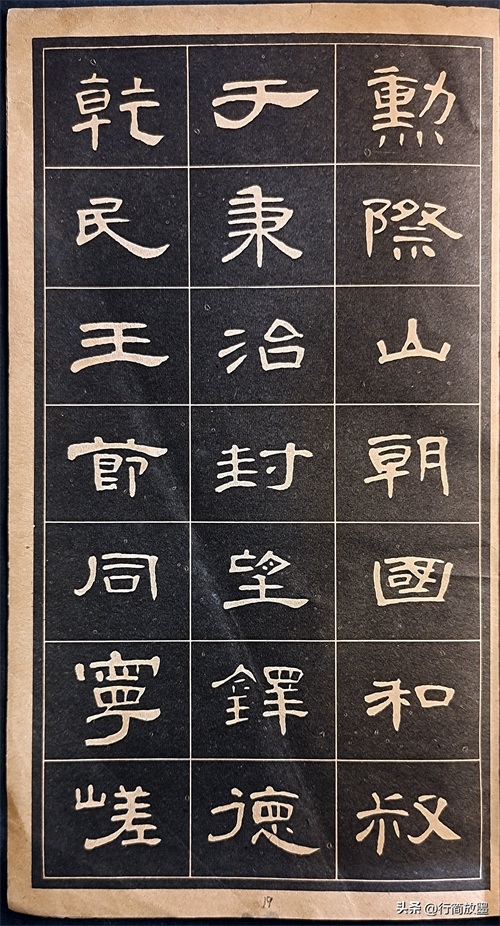 勳際山朝國和叔
于秉治封望鐸德
乾民王節同寧嵯
19
头条 @行简放墨